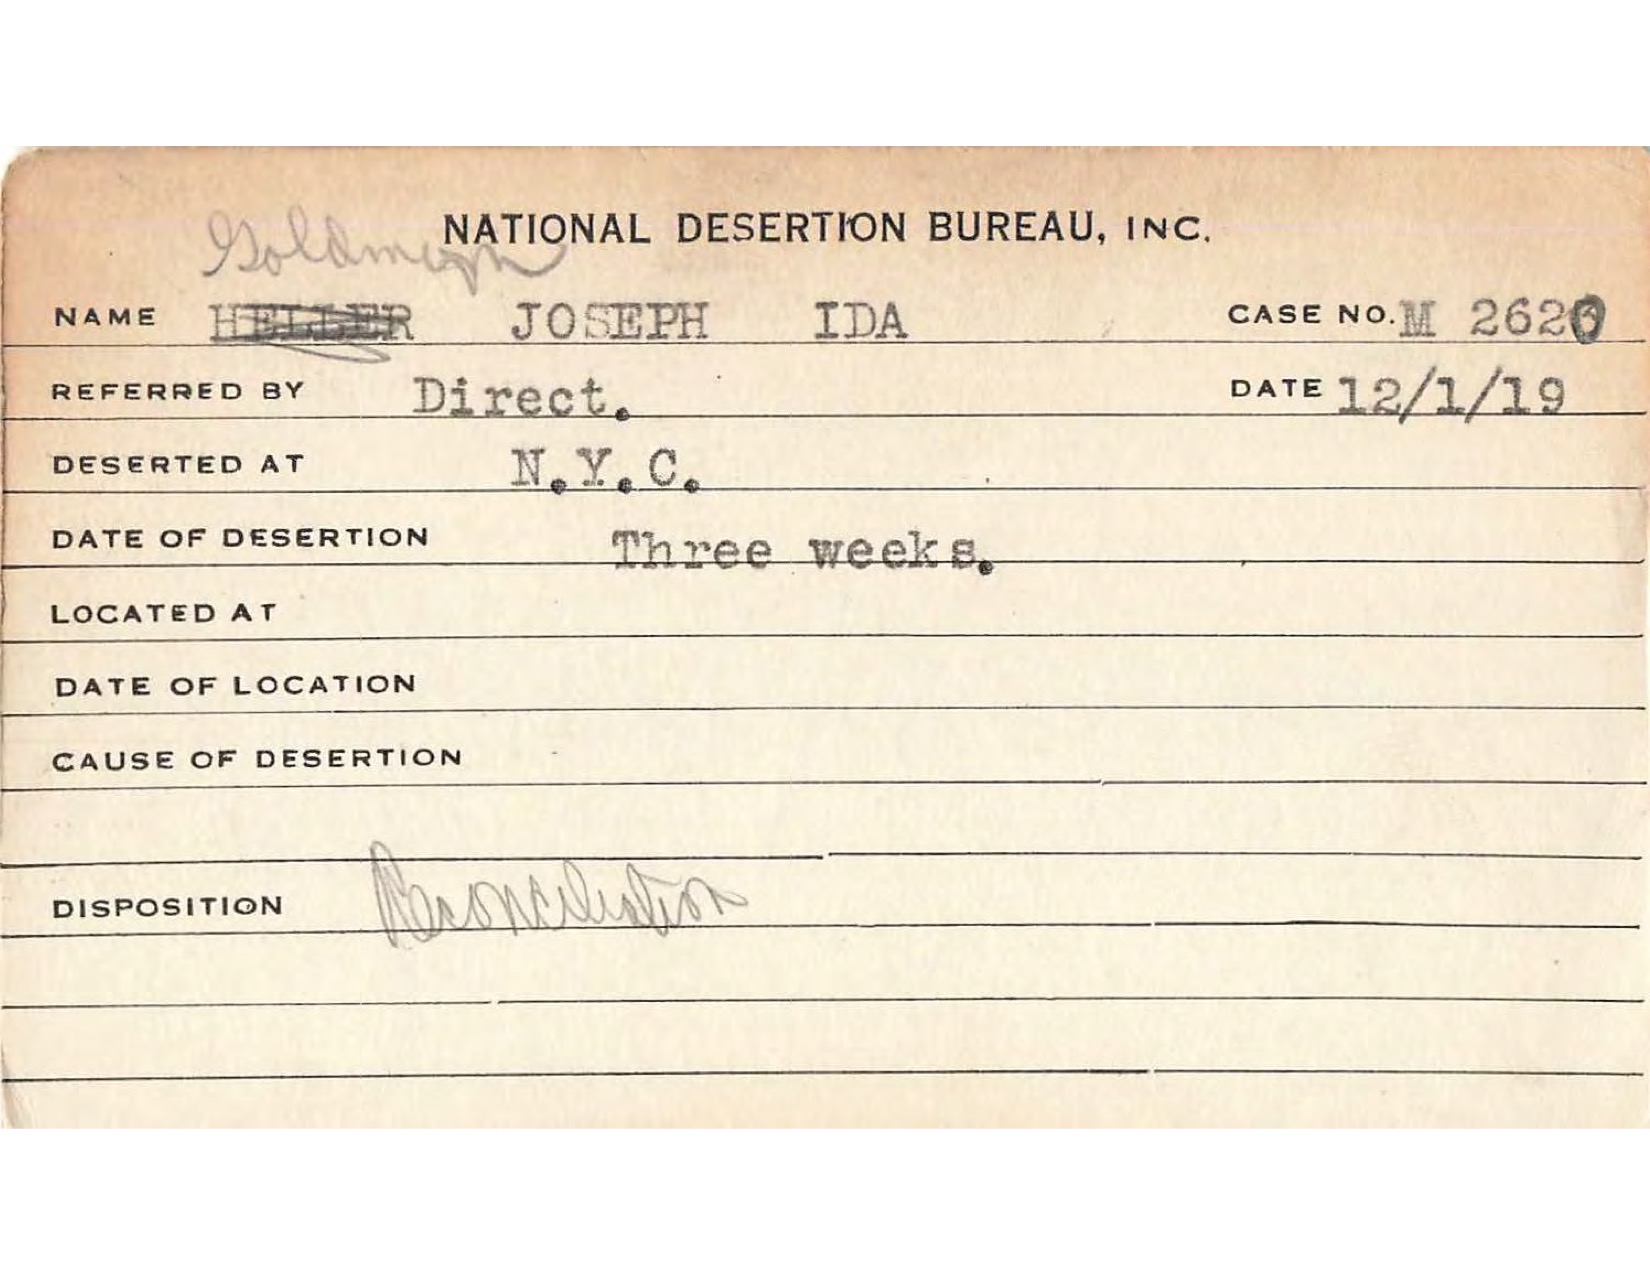 NATIONAL DESERTION BUREAU, INC.
NAME HELLER JOSEPH IDA CASE NO. M 2620
REFERRED BY Direct. DATE 12/1/19
DESERTED AT N.Y.C.
DATE OF DESERTION Three weeks.
LOCATED AT
DATE OF LOCATION
CAUSE OF DESERTION
DISPOSITION Reconciliation